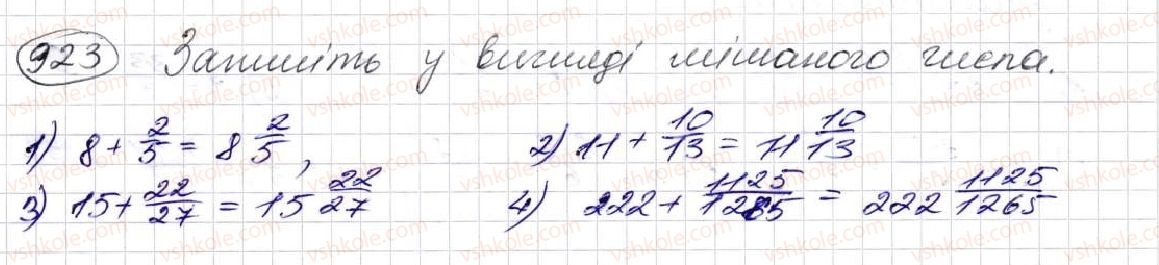 923 Запишіть у вигляді мішаного числа.
1) 8 + 2/5 = 8 2/5, 2) 11 + 10/13 = 11 10/13
3) 15 + 22/27 = 15 22/27 4) 222 + 1125/1265 = 222 1125/1265
vshkole.com